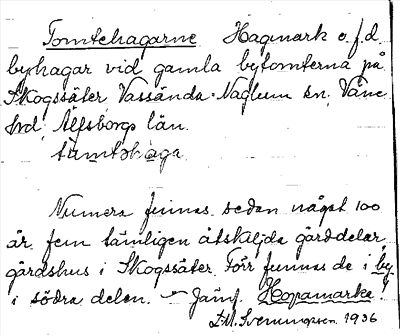 Tomtehagarne Hagmark o. f. d.
byhagar vid gamla bytomterna på
Skogssäter, Vassända-Naglum sn, Väne
hrd, Älfsborgs län.
Numera finnas sedan något 100
år fem tämligen åtskilda gårddelar,
gårdshus i Skogssäter. Förr funnos de i by
i södra delen. – Jämf. Hopamarke!
L. M. Svenungsson. 1936